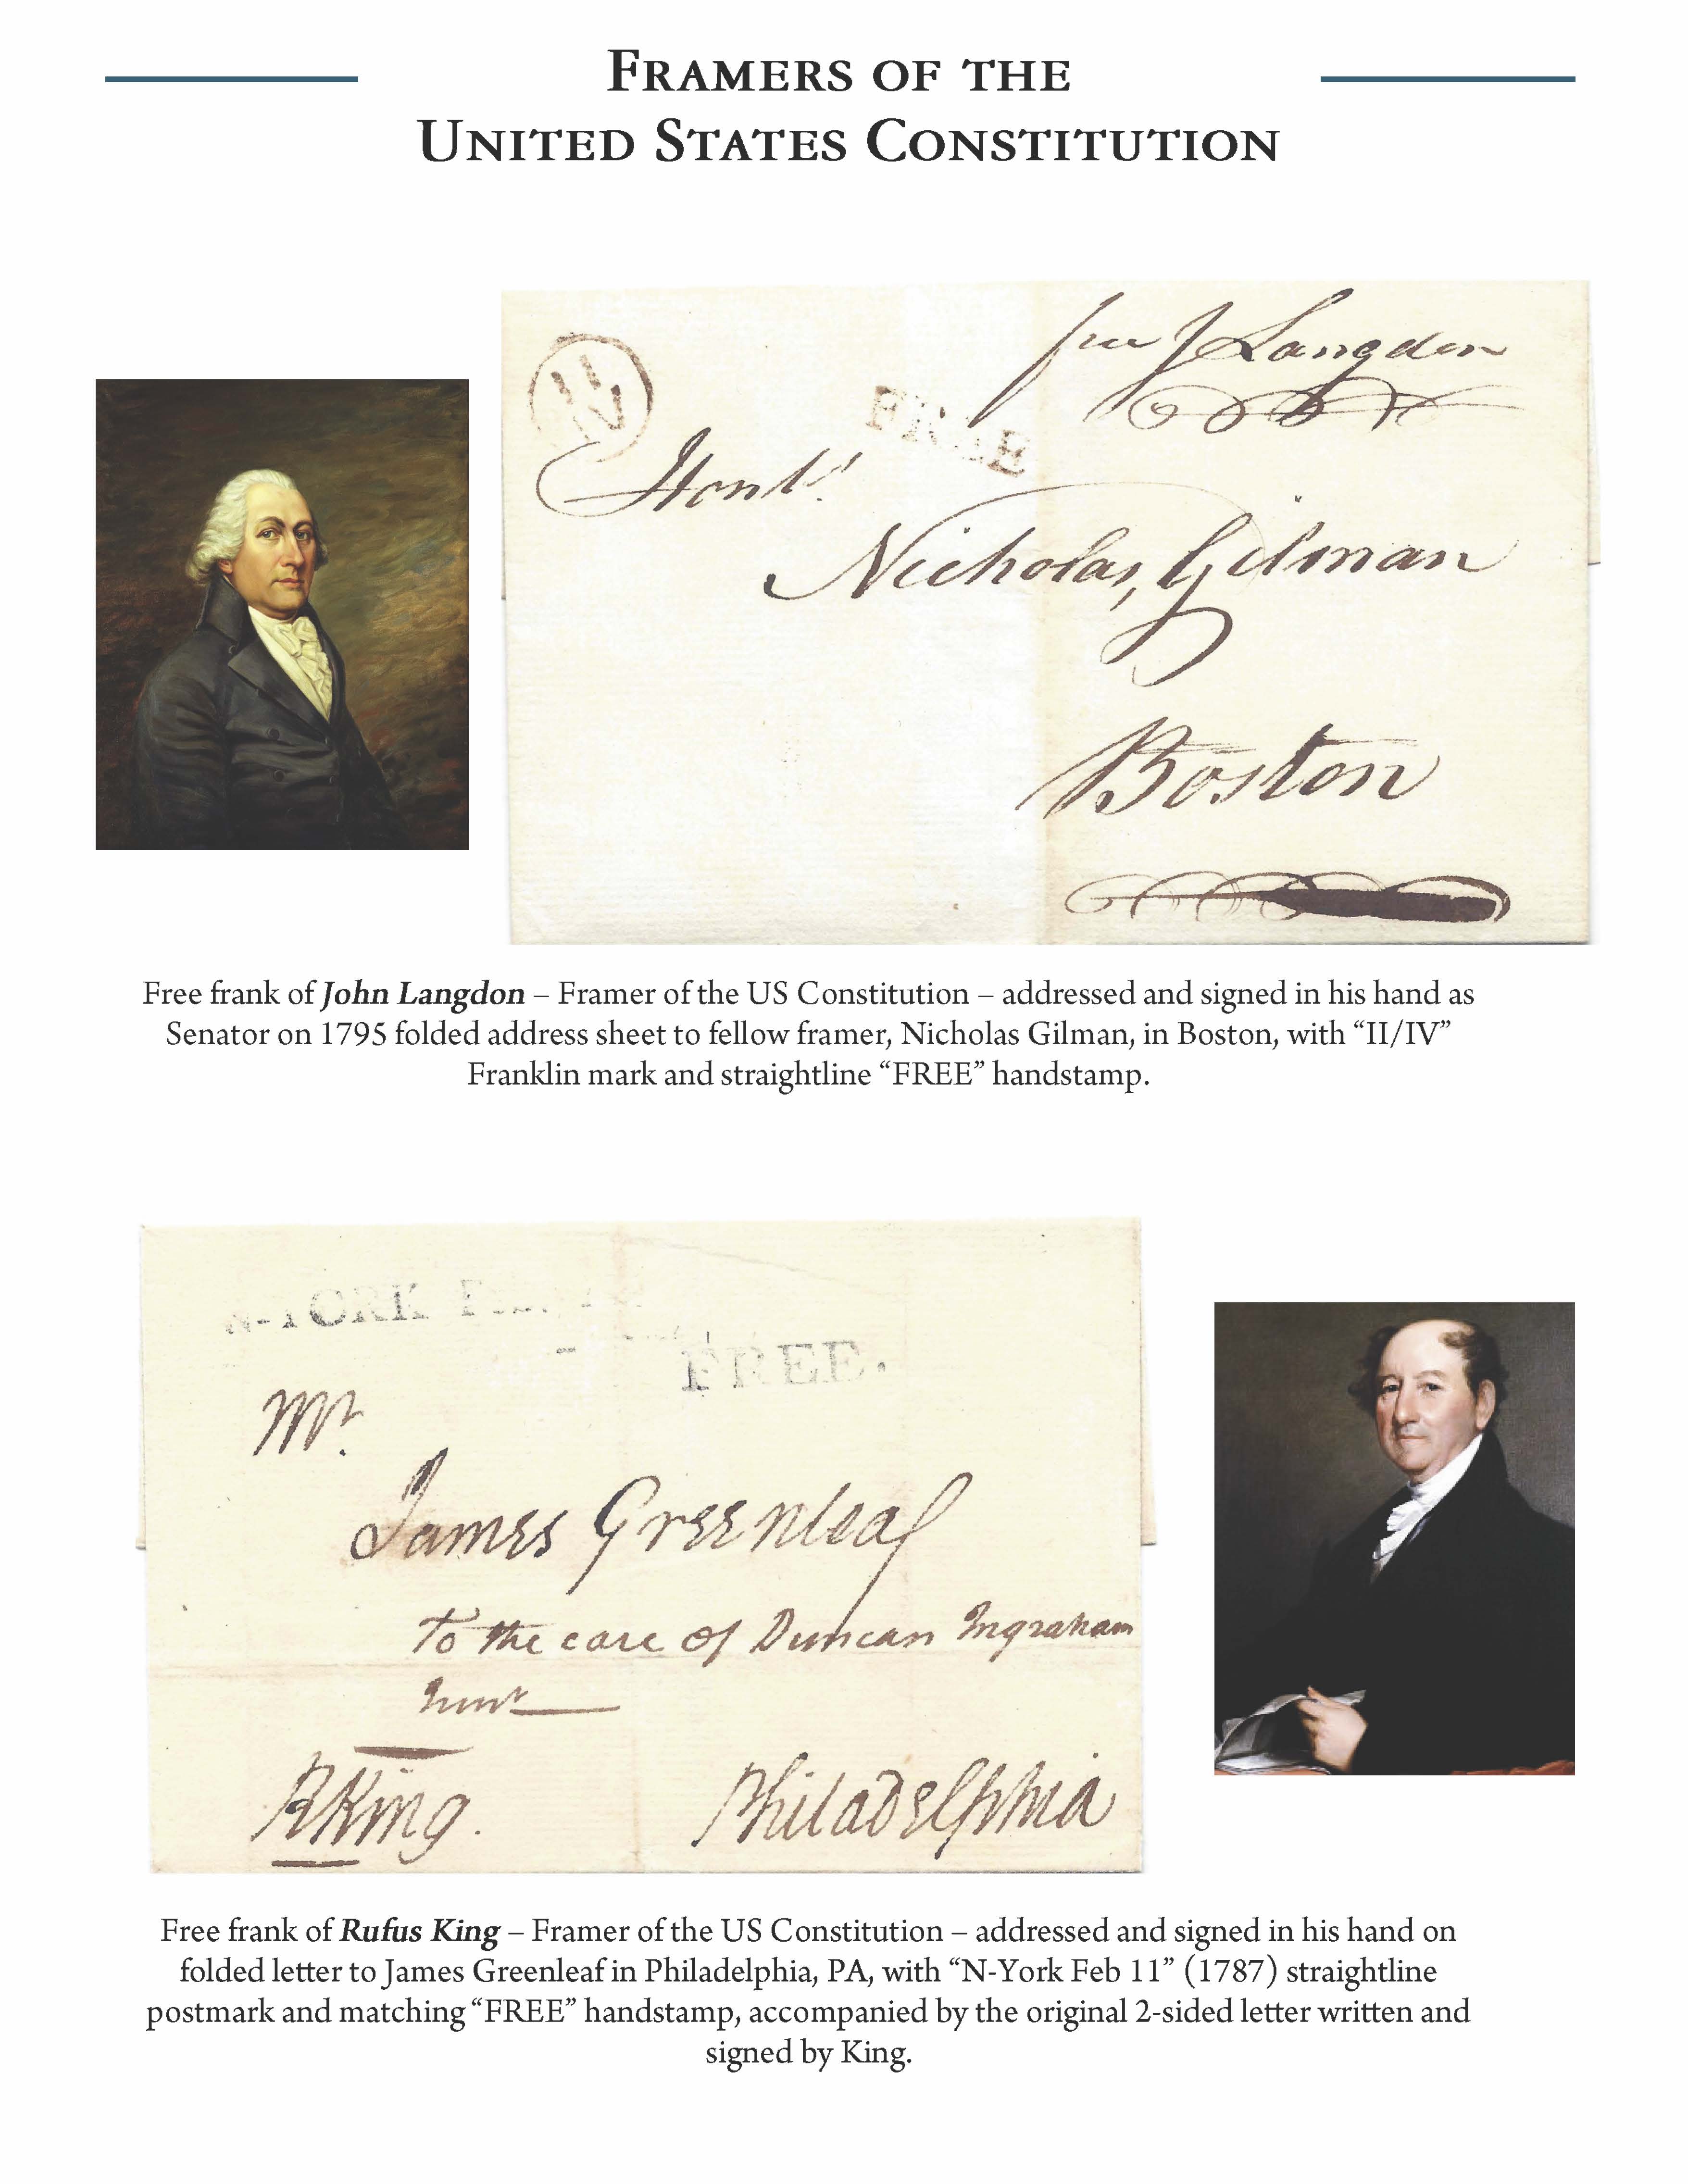 FRAMERS OF THE
UNITED STATES CONSTITUTION
free J Langdon
II
IV
FREE
Honbl.
Nicholas Gilman
Boston
Free frank of John Langdon – Framer of the US Constitution – addressed and signed in his hand as
Senator on 1795 folded address sheet to fellow framer, Nicholas Gilman, in Boston, with “II/IV”
Franklin mark and straightline “FREE” handstamp.
N-YORK
FREE.
Mr.
James Greenleaf
To the care of Duncan Ingraham
RKing.
Philadelphia
Free frank of Rufus King – Framer of the US Constitution – addressed and signed in his hand on
folded letter to James Greenleaf in Philadelphia, PA, with “N-York Feb 11” (1787) straightline
postmark and matching “FREE” handstamp, accompanied by the original 2-sided letter written and
signed by King.